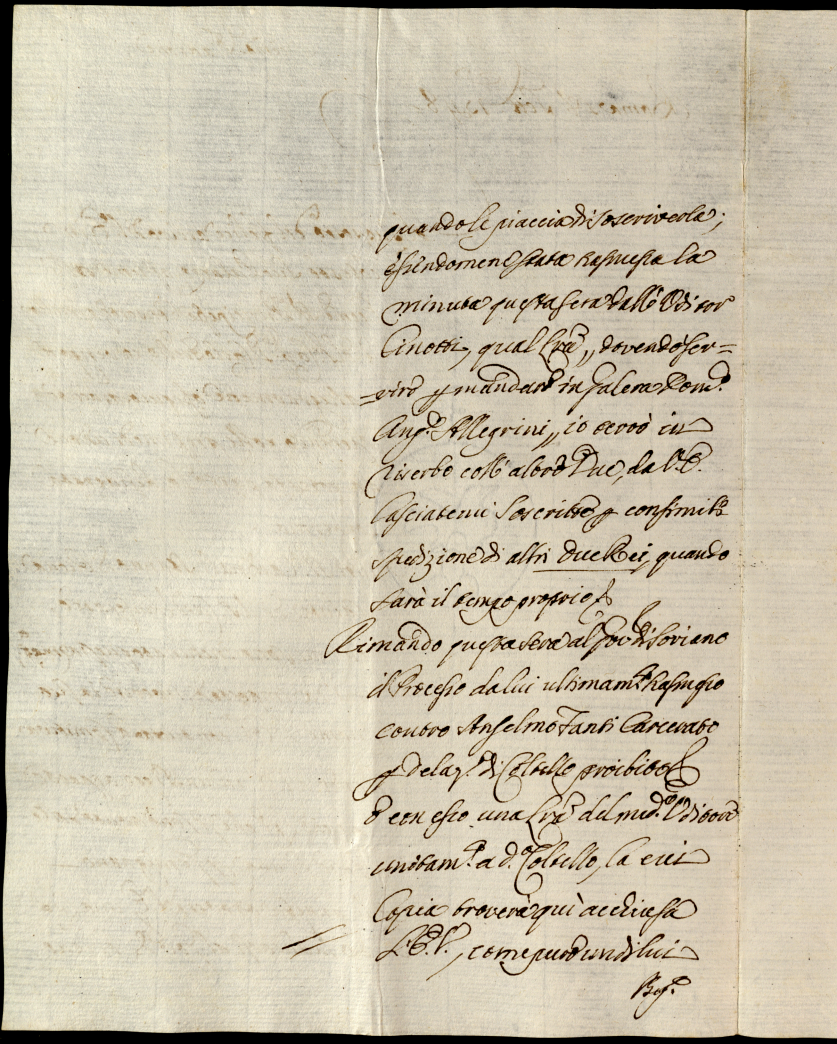 quando le piaccia di soscriverla;
essendomene stata trasmessa la
minuta questa sera dallo Uditor
Cinotti, qual Lrã, dovendo ser=
=vire p mandare in Galera Dom.º
Ang.º Allegrini, io terrò in
riserbo coll'altre Due, da V.E.
lasciatemi soscritte p consimile
spedizione di altri due Rei, quando
sarà il tempo proprio
Rimando questa sera al Gov.re di Soriano
il Processo da lui ultimam.te trasmesso
contro Anselmo Fanti Carcerato
p delaz.e di Coltello proibito
e con esso una Lrã del med.mo Uditore
unitam.te a d.o Coltello, la cui
Copia troverà quì acchiusa
L'E.V., come pure una di lui